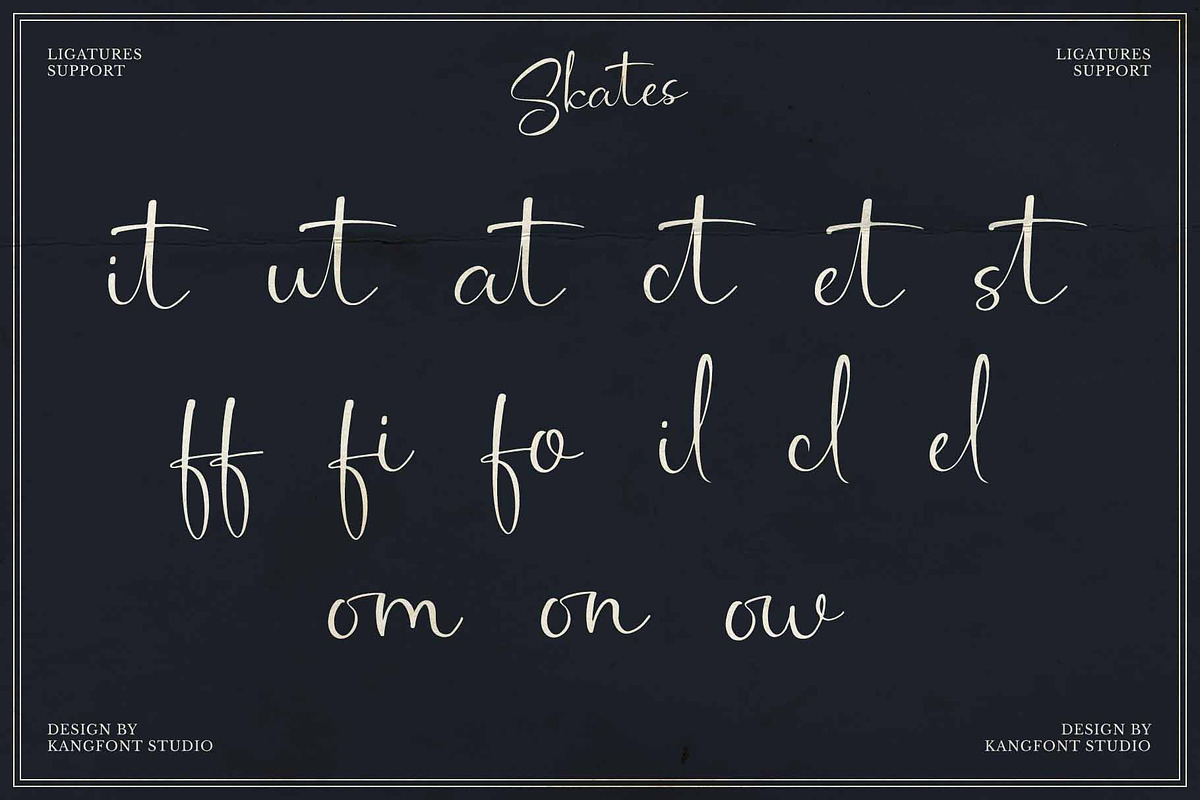 LIGATURES
SUPPORT
Skates
LIGATURES
SUPPORT
it ut at ct et st
ff fi fo il cl el
om on ow
DESIGN BY
KANGFONT STUDIO
DESIGN BY
KANGFONT STUDIO